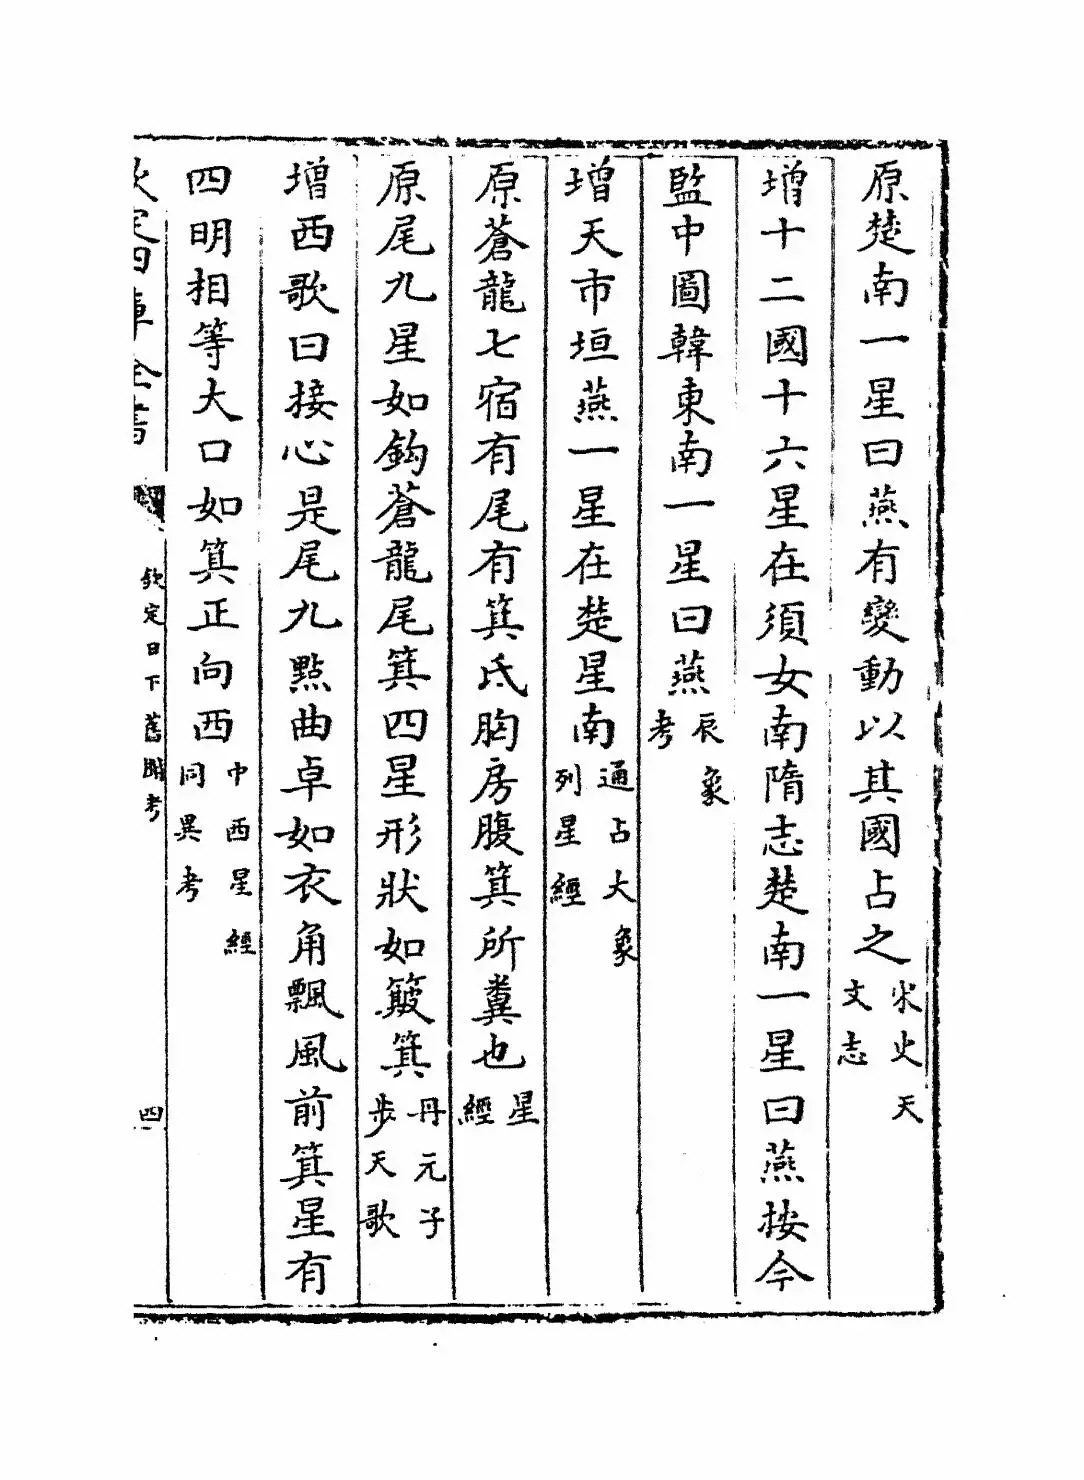 原楚南一星曰燕有變動以其國占之宋史天文志
增十二國十六星在須女南隋志楚南一星曰燕按今
監中圖韓東南一星曰燕辰象考
增天市垣燕一星在楚星南通占大象列星經
原蒼龍七宿有尾有箕氐胸房腹箕所糞也星經
原尾九星如鈎蒼龍尾箕四星形狀如簸箕丹元子步天歌
增西歌曰接心是尾九點曲卓如衣角飄風前箕星有
四明相等大口如箕正向西中西星經同異考
欽定四庫全書
欽定日下舊聞考
四